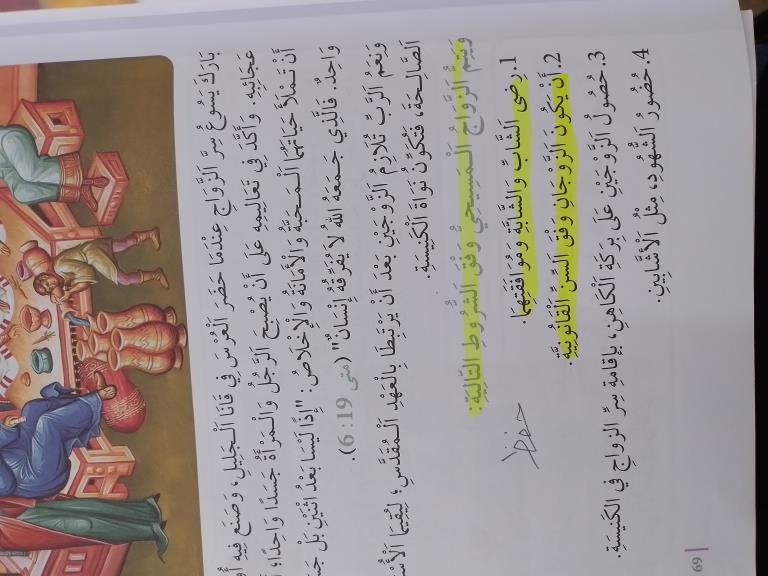 بَارَكَ يَسُوعُ سِرَّ الزَّوَاجِ عِنْدَمَا حَضَرَ الْعُرْسَ فِي قَانَا الْجَلِيلِ، وَصَنَعَ فِيهِ
عَجَائِبِهِ. وَأَكَّدَ فِي تَعَالِيمِهِ عَلَى أَنْ يُصْبِحَ الرَّجُلُ وَالْمَرْأَةُ جَسَدًا وَاحِدًا؛
أَنْ تَمْلَأَ حَيَاتَهُمَا الْمَحَبَّةُ وَالْأَمَانَةُ وَالْإِخْلَاصُ: "إِذًا لَيْسَا بَعْدُ اثْنَيْنِ بَلْ
وَاحِدٌ. فَالَّذِي جَمَعَهُ اللهُ لَا يُفَرِّقُهُ إِنْسَانٌ" (متى 6:19).
وَنِعَمُ الرَّبِّ تُلَازِمُ الزَّوْجَيْنِ بَعْدَ أَنْ يَرْتَبِطَا بِالْعَهْدِ الْمُقَدَّسِ؛ لِيُقِيمَا
الصَّالِحَةَ، فَتَكُونُ نَوَاةَ الْكَنِيسَةِ.
وَيَتِمُّ الزَّوَاجُ الْمَسِيحِيُّ وَفْقَ الشُّرُوطِ التَّالِيَةِ:
1. رِضَى الشَّابِّ وَالشَّابَّةِ وَمُوَافَقَتِهِمَا.
حفظ
2. أَنْ يَكُونَ الزَّوْجَانِ وَفْقَ السِّنِّ الْقَانُونِيَّةِ.
3. حُصُولُ الزَّوْجَيْنِ عَلَى بَرَكَةِ الْكَاهِنِ، بِإِقَامَةِ سِرِّ الزواجِ فِي الْكَنِيسَةِ.
4. حُضُورُ الشُّهُودِ، مِثْلُ الْأَشَابِينِ.
69